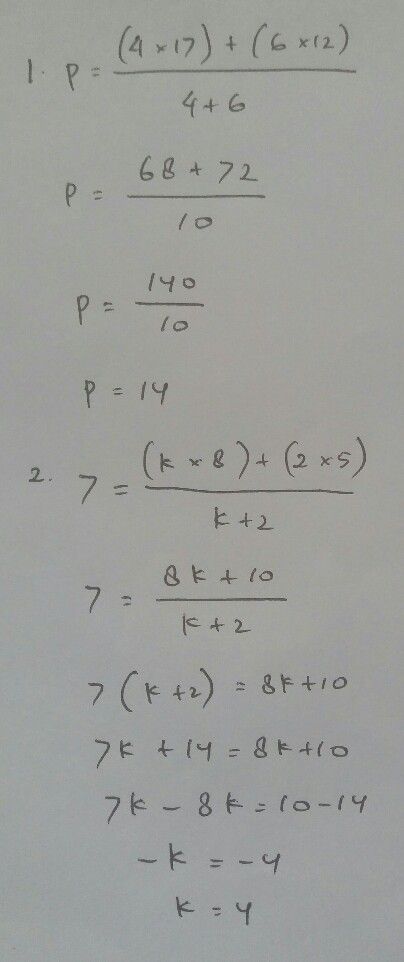 1. P = (4 × 17) + (6 × 12) / 4 + 6
P = 68 + 72 / 10
P = 140 / 10
P = 14
2. 7 = (k × 8) + (2 × 5) / k + 2
7 = 8k + 10 / k + 2
7(k + 2) = 8k + 10
7k + 14 = 8k + 10
7k - 8k = 10 - 14
-k = -4
k = 4